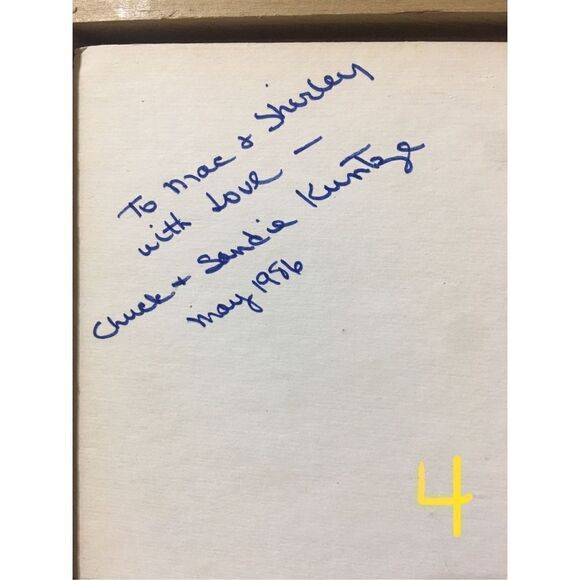 To Mac & Shirley
with Love —
Chuck & Sandie Kuntze
May 1986
4